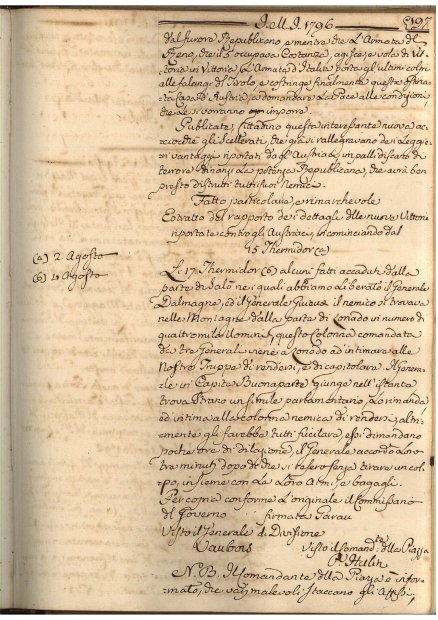 Dell' A. 1796 197
dal furore Republicano, e mentre che l'Armata del
Reno, che il 5 occupava Costanza, agisce, e vola di Vit-
toria in Vittoria, l'Armata d'Italia porta gl'ultimi colpi
alle falangi di Tirolo e costringe finalmente questa ostina-
ta Casa d'Austria, a domandare la Pace alle condizioni
che le si vorranno imporre.
Publicate, Cittadino questa interessante nuova ac-
ciocchè gli Scellerati, che già si rallegravano dei leggie-
ri vantaggi riportati dagl'Austriaci, impallidiscano di
terrore dinanzi la potenza Republicana, che avrà ben
presto distrutti tutti i suoi Nemici.
Fatto particolare, e rimarchevole
Estratto del rapporto dei dettagli delle nuove Vittorie
riportate contro gli Austriaci, incominciando dal
15 Thermidor (a)
(a) 2 Agosto
(b) 4 Agosto
Li 17 Thermidor (b) alcuni fatti accaduti dalla
parte di Salò nei quali abbiamo liberato il Generale
Dalmagne, ed il Generale il nemico si trovava
nelle Montagne dalla parte di Lonado in numero di
quattromila Uomini, questa Colonna comandata
da tre Generali viene a Lonado ad intimare alle
Nostre Truppe di rendersi, e di capitolare. Il Gene-
rale in Capite Buonaparte giunge nell'istante
trova strano un simile parlamentario, lo rimanda
ed intima alla colonna nemica di rendersi, altri-
mente gli farebbe tutti fucilare, essi dimandano
poche ore di dilazione, il Generale accordò loro
tre minuti, dopo di che si resero senza tirare un col-
po, insieme con le loro Armi, e bagagli.
Per copia conforme l'originale il Commissario
del Governo firmato Parau
Visto il Generale di Divisione
Vaubois Visto il Comand.te della Piazza
P. Hulin
N. B. Il Comandante della Piazza è infor-
mato, che varj malevoli staccano gli Affissi,